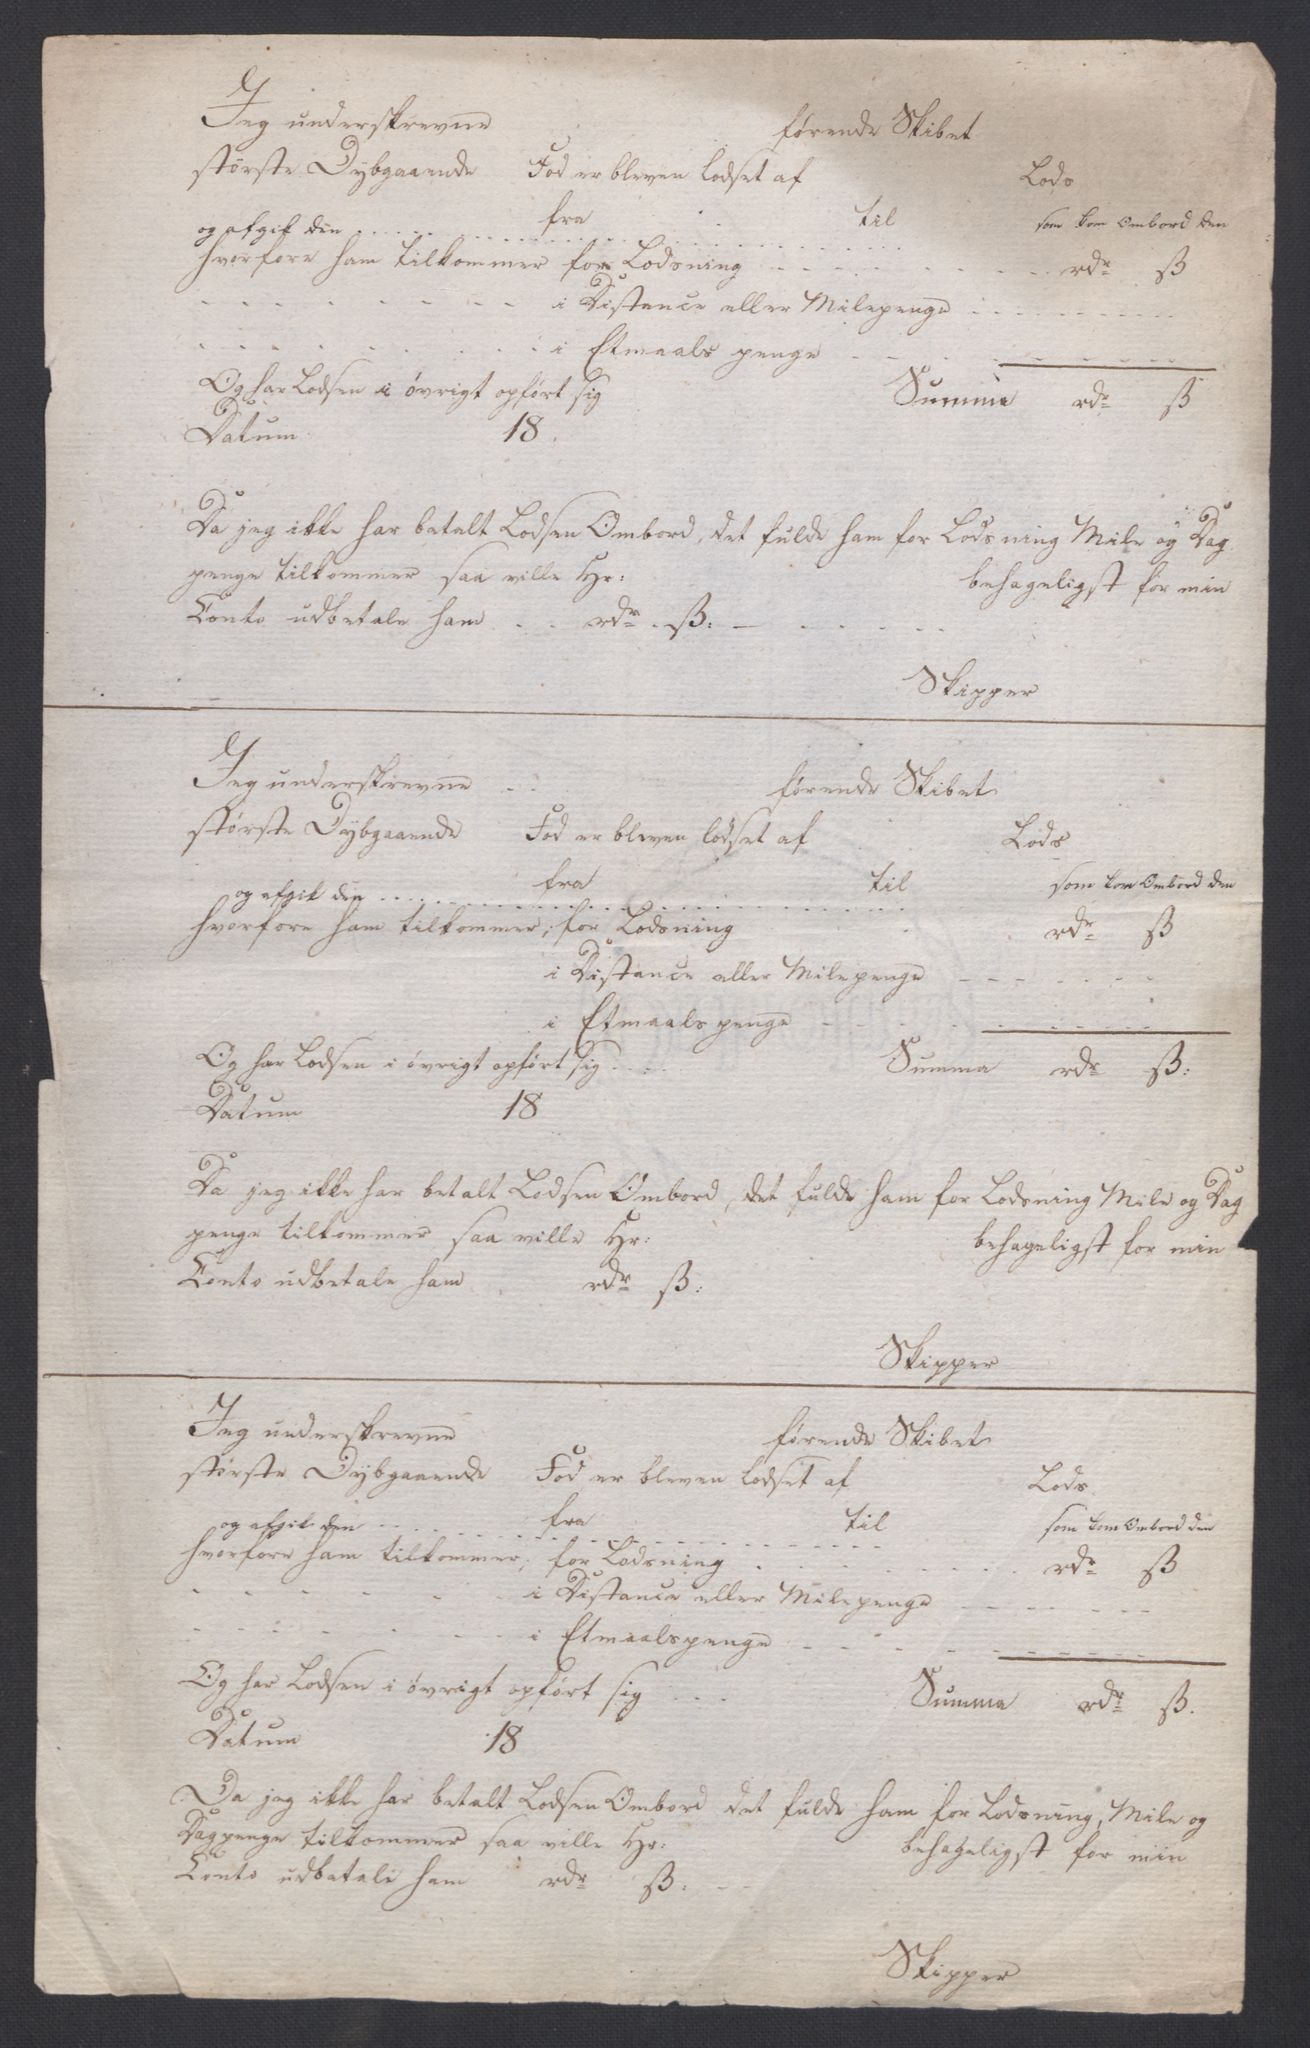 Jeg underskrevne førende Skibet
største Dybgaaende Fod er bleven lodset af Lods
fra til som kom Ombord den
og afgik den . . . . . .
hvorfore ham tilkommer for Lodsning rdr ß
i Distance eller Milepenge
i Etmaals penge
Og har Lodsen i øvrigt opført sig Summa rdr ß
Datum 18
Da jeg ikke har betalt Lodsen Ombord, det fulde ham for Lodsning Mile og Dag
penge tilkommer saa ville Hr: behageligst for min
Conto udbetale ham rdr ß:
Skipper
Jeg underskrevne førende Skibet
største Dybgaaende Fod er bleven lodset af Lods
fra til som kom Ombord den
og afgik den . . . . . .
hvorfore ham tilkommer, for Lodsning rdr ß
i Distance eller Milepenge
i Etmaals penge
Og har Lodsen i øvrigt opført sig . . . . Summa rdr ß:
Datum 18
Da jeg ikke har betalt Lodsen Ombord, det fulde ham for Lodsning Mile og Dag
penge tilkommer saa ville Hr: behageligst for min
Conto udbetale ham rdr ß:
Skipper
Jeg underskrevne førende Skibet
største Dybgaaende Fod er bleven lodset af Lods
fra til som kom Ombord den
og afgik den . . . . . .
hvorfore ham tilkommer, for Lodsning rdr ß
i Distance eller Milepenge
i Etmaalspenge
Og har Lodsen i øvrigt opført sig . . . Summa rdr ß.
Datum 18
Da jeg ikke har betalt Lodsen Ombord det fulde ham for Lodsning, Mile og
Dagpenge tilkommer saa ville Hr: behageligst for min
Conto udbetale ham rdr ß:
Skipper